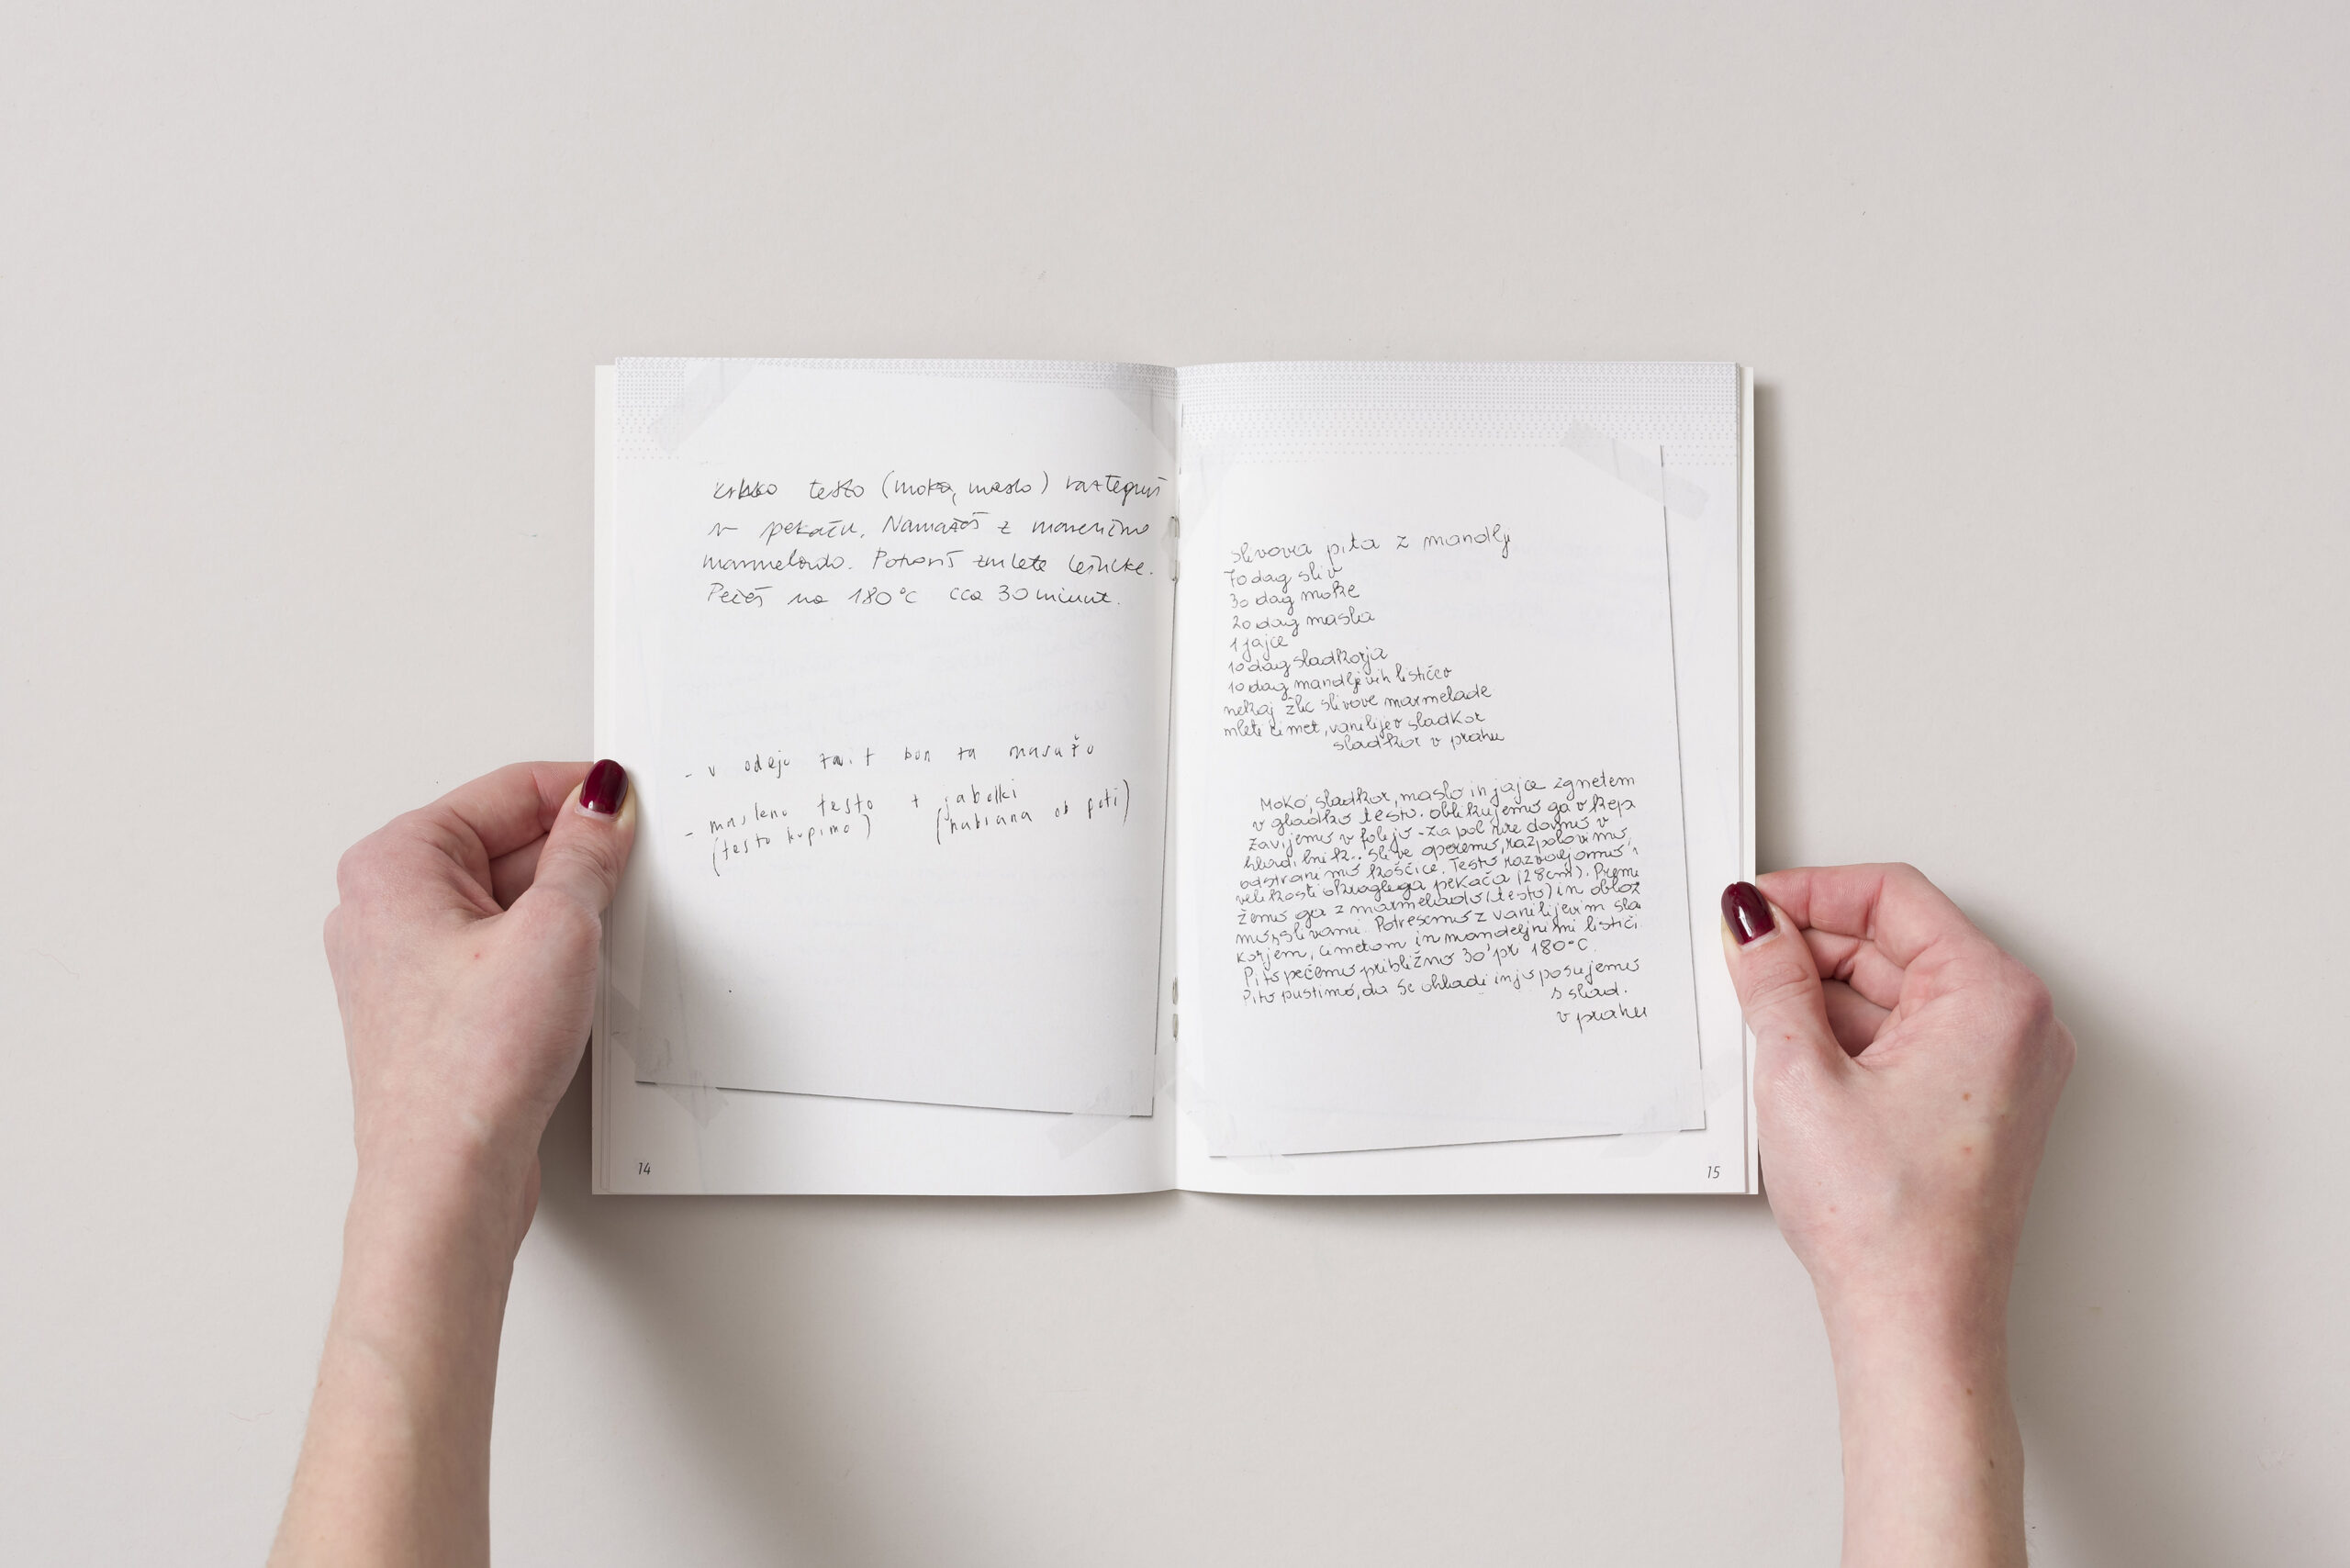 krhko testo (moka, maslo) raztegneš
v pekaču. Namažeš z marelično
marmelado. Potreseš zmlete lešnike.
Pečeš na 180°C cca 30 minut.
- v odejo zavit bon za masažo
- masleno testo + jabolki
(testo kupimo) (nabrana ob poti)
14
slivova pita z mandlji
70 dag sliv
30 dag moke
20 dag masla
1 jajce
10 dag sladkorja
10 dag mandljevih lističev
nekaj žlic slivove marmelade
mleti cimet, vanilijev sladkor
sladkor v prahu
Moko, sladkor, maslo in jajce zgnetem
v gladko testo. oblikujemo ga v kepo
zavijemo v folijo - za pol ure damo v
hladilnik. Slive operemo, razpolovimo,
odstranimo koščice. Testo razvaljamo v
velikosti okroglega pekača (28cm). Prema
žemo ga z marmelado (testo) in oblož
mo s slivami. Potresemo z vanilijevim sla
korjem, cimetom in mandeljnimi lističi
Pito pečemo približno 30' pr 180°C.
Pito pustimo, da se ohladi in jo posujemo
s slad.
v prahu
15